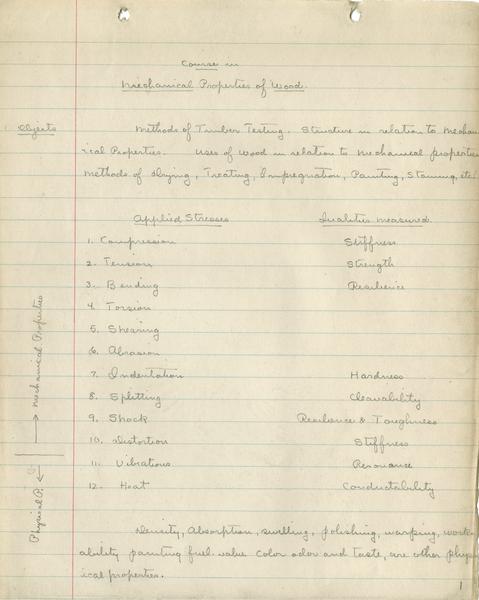 Course in
Mechanical Properties of Wood.
Objects Methods of Timber Testing. Structure in relation to Mechan
ical Properties. Uses of Wood in relation to Mechanical properties
Methods of drying, Treating, Impregnation, Painting, Staining, etc.
Applied Stresses Qualities measured.
1. Compression Stiffness
2. Tension Strength
3. Bending Resilience
4. Torsion
5. Shearing
6. Abrasion
7. Indentation Hardness
8. Splitting Cleavability
9. Shock Resilience & Toughness
10. Distortion Stiffness
11. Vibrations Resonance
12. Heat Conductability
Mechanical Properties
Physical P.
Density, Absorption, swelling, polishing, warping, work-
ability painting fuel value color odor and taste, are other phys
ical properties.
1